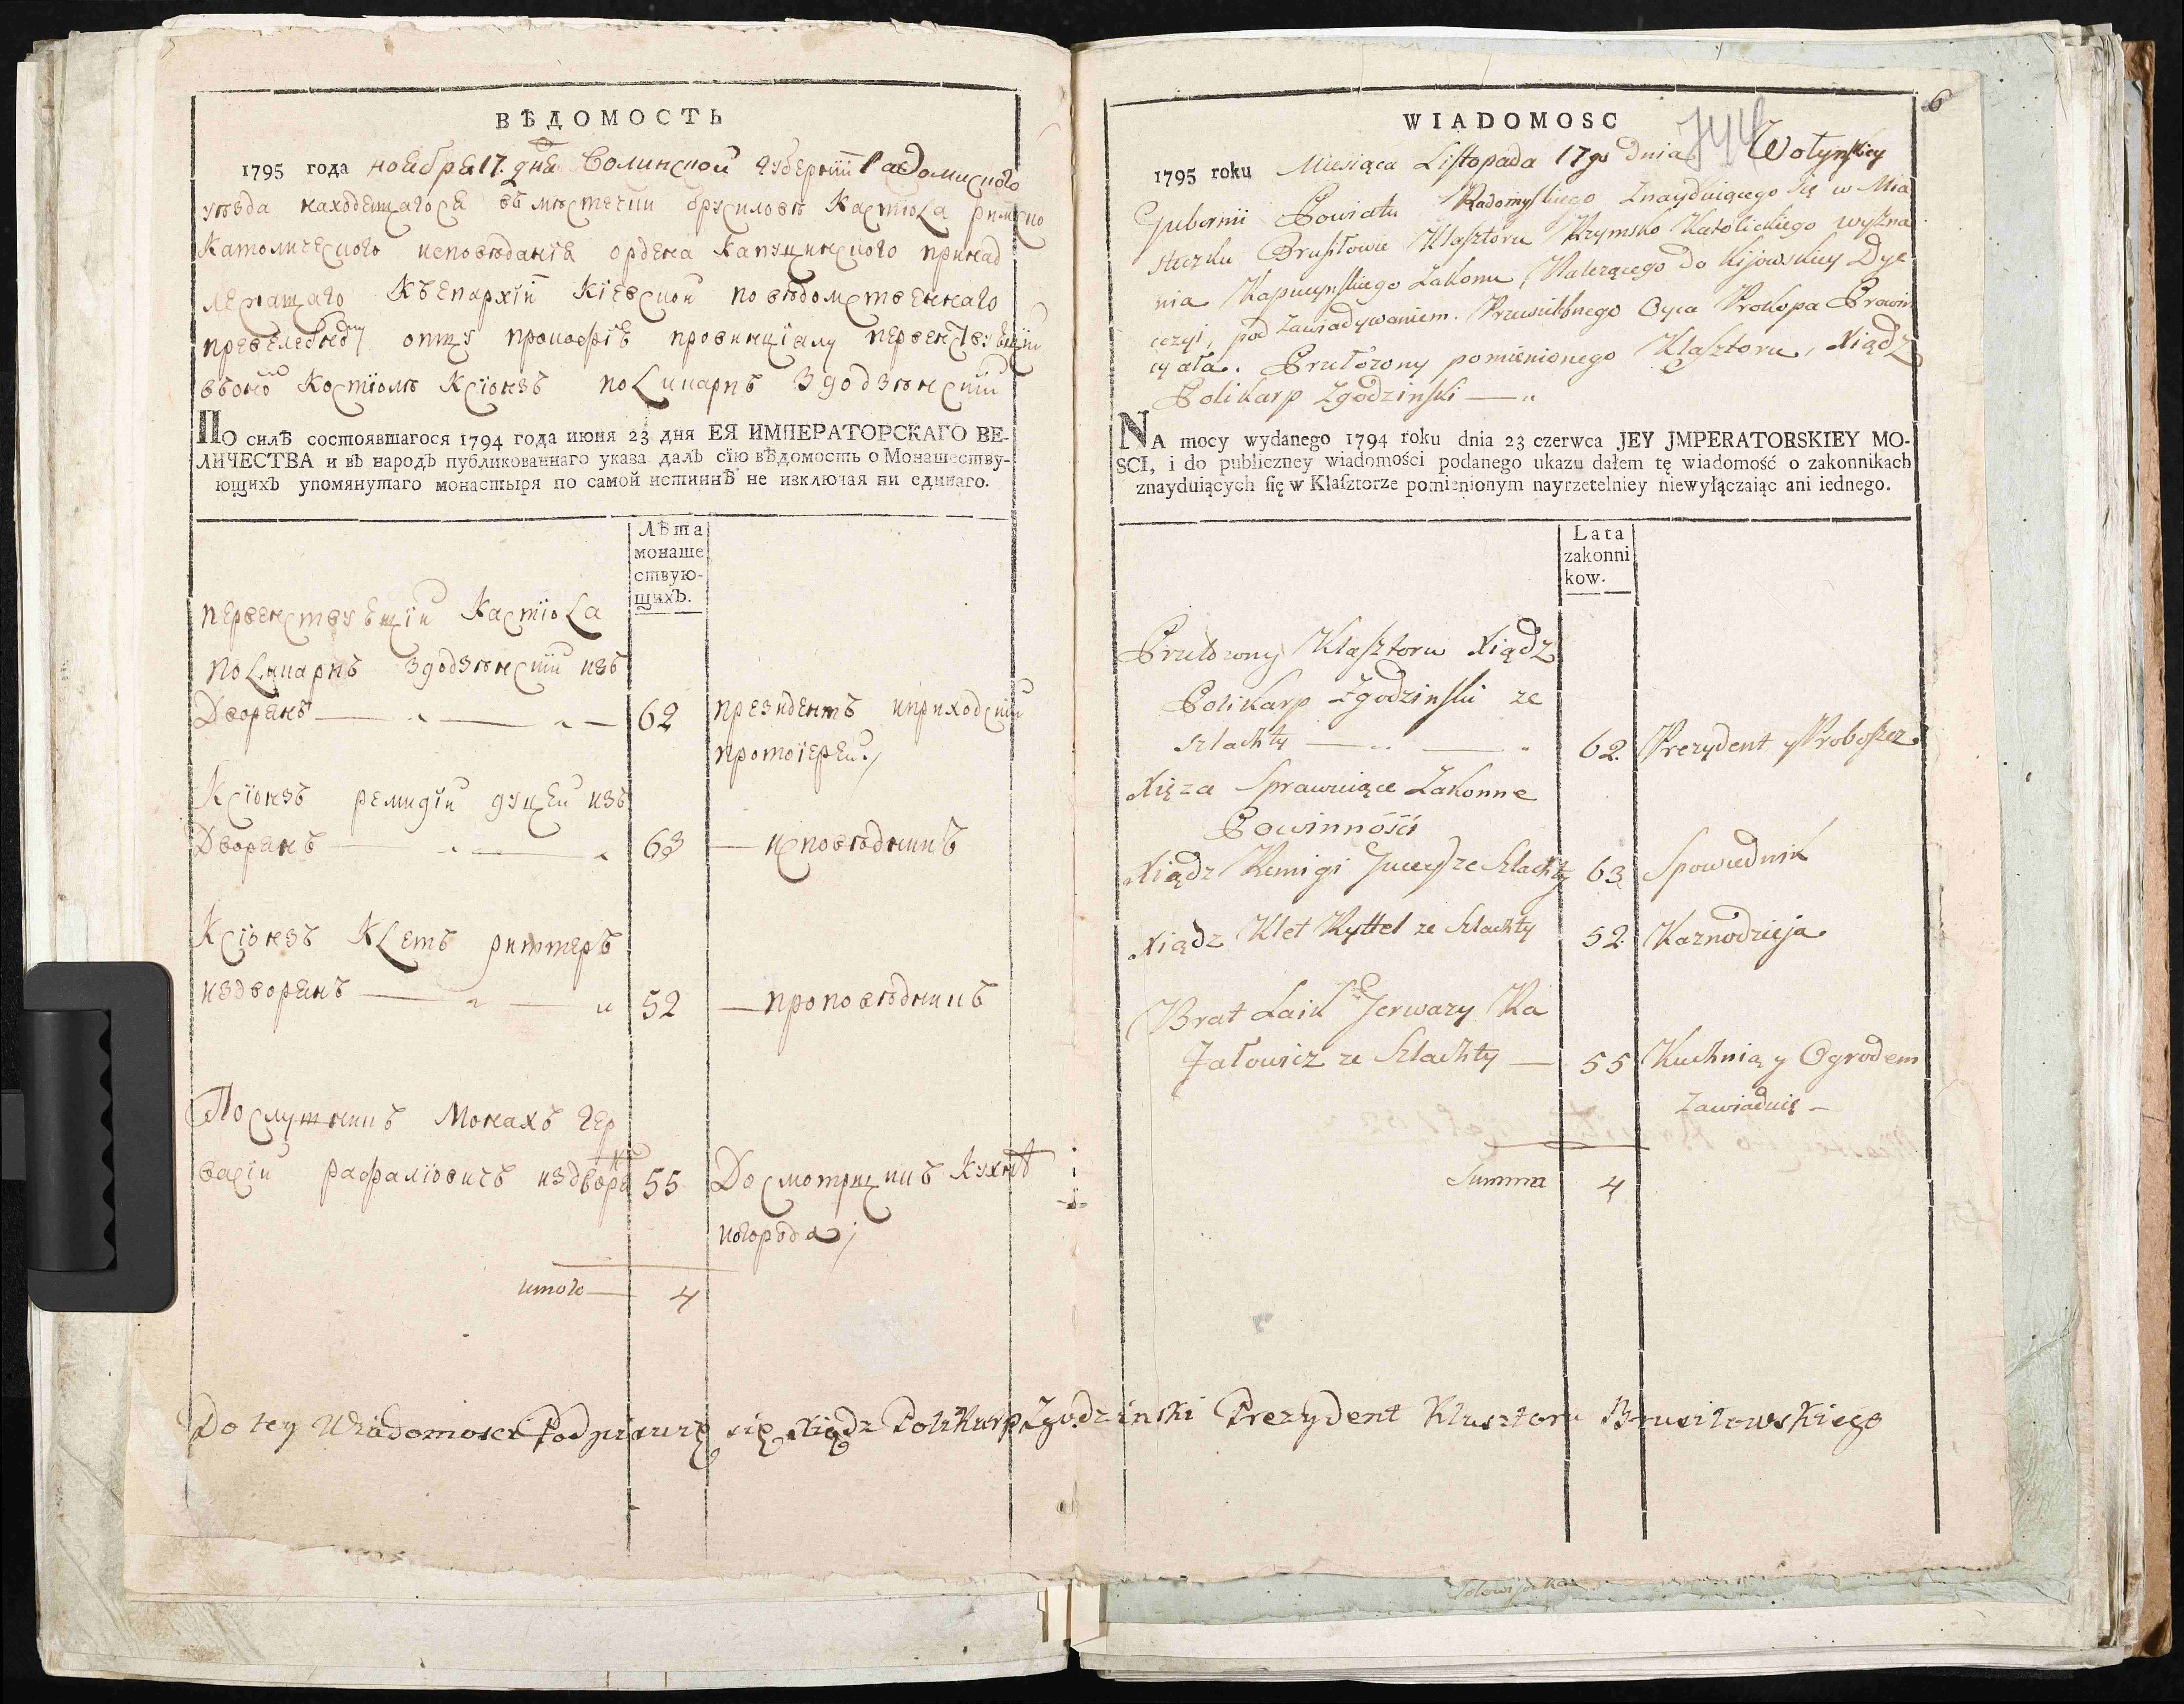 ВѢДОМОСТЬ
1795 года ноября 17. дня Волинской Губернїи Радомиского
уѣзда находящагося въ мѣстечки Брусиловѣ Кастiола римско
Католического исповѣданїя ордена Капуцинского принад
лежащаго Къ Епархїи Кїевской повѣдомственнаго
превелебному отцу прокофїѣ провинцїалу первенствующїи
въоно Костїолѣ Ксїонзъ поликарпъ Згодзѣнскїи
ПО силѣ состоявшагося 1794 года июня 23 дня ЕЯ ИМПЕРАТОРСКАГО ВЕ-
ЛИЧЕСТВА и въ народъ публикованнаго указа далъ сїю вѣдомость о Монашеству-
ющихъ упомянутаго монастыря по самой истиннѣ не изключая ни единаго.
Лѣта
монаше
ствую-
щихъ.
первенствующїи Кастїола
поликарпъ Згодзѣнскїи изъ
Дворянъ 62 президентъ иприходскїи
протоїереи
Ксїонзъ ремигїи Яуцеи изъ
Дворянъ 63 исповѣдникъ
Ксїонзъ Клетъ риттеръ
издворянъ 52 проповѣдникъ
Послушникъ Монахъ Гер
васїи рафаловичъ издворя 55 Досмотрщикъ Кухнѣ
иогорода
итого 4
WIADOMOSC
6
1795 roku Miesiąca Listopada 17go Dnia Wołynskiey
Gubernii Powiatu Radomyskiego Znayduiącego się w Mia
steczku Brusiłowie Klasztoru Rzymsko Katolickiego wyzna
nia Kapucynskiego Zakonu, Nalezącego do Kijowskiey Dye
cezyi, pod Zawiadywaniem. Przewielebnego Oyca Prokopa Prowin
cyała. Przełozony pomienionego Klasztoru, Xiądz
Polikarp Zgodzinski
NA mocy wydanego 1794 roku dnia 23 czerwca JEY JMPERATORSKIEY MO-
SCI, i do publiczney wiadomości podanego ukazu dałem tę wiadomość o zakonnikach
znayduiących się w Klasztorze pomienionym nayrzetelniey niewyłączaiąc ani iednego.
Lata
zakonni
kow.
Przełozony Klasztoru Xiądz
Polikarp Zgodzinski ze
szlachty 62. Prezydent y Proboszcz
Xięza Sprawuiące Zakonne
Powinności
Xiądz Remigi ze Szlachty 63 Spowiednik
Xiądz Klet Ryttel ze Szlachty 52. Kaznodzieja
Brat Laik Jerwazy Ra
fałowicz ze Szlachty 55 Kuchnią y Ogrodem
Zawiaduię
Summa 4
Do tey Wiadomosci Podpisuię się Xiądz Polikarp Zgodzinski Prezydent Klasztoru Brusiłowskiego